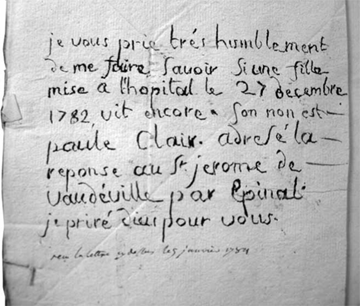 je vous prie trés humblement
de me faire savoir si une fille
mise a l'hopital le 27 décembre
1782 vit encore. son non est
paule Clair. adresé la
reponse au Sr jerome de
vaudéville par Epinal
je priré dieu pour vous.